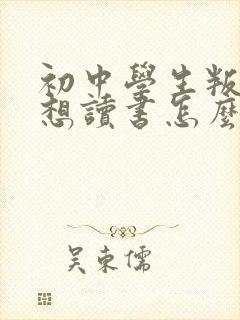 初中學生叛
想讀書怎麼
吳東儒